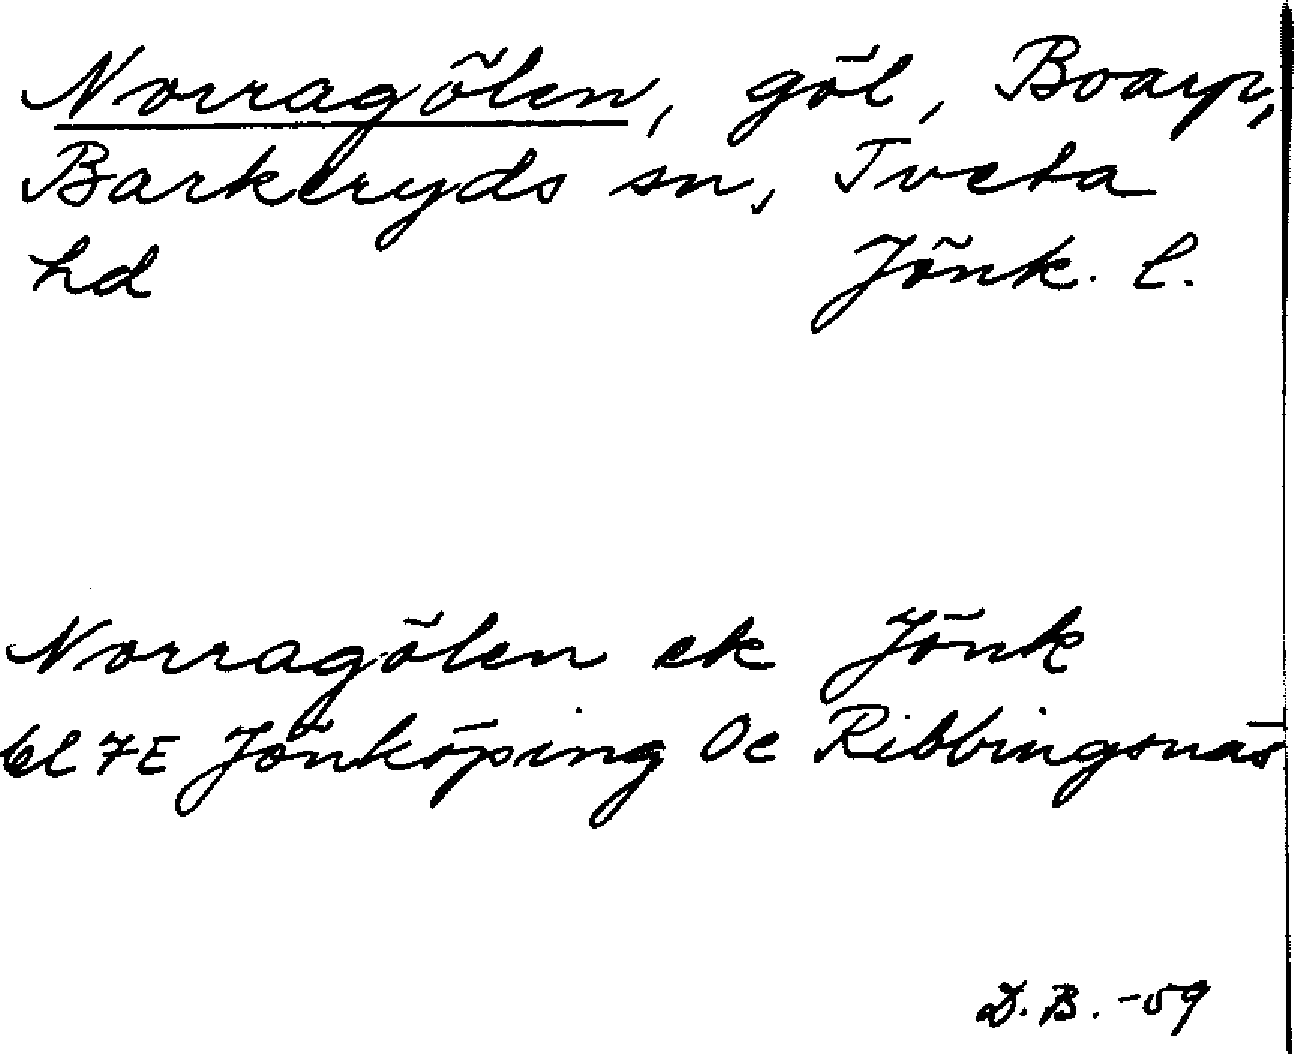 Norragölen, göl, Boarp,
Barkeryds sn, Tveta
hd Jönk. l.
Norragölen ek Jönk
bl 7E Jönköping Oe Ribbingsnäs
D.B. -59